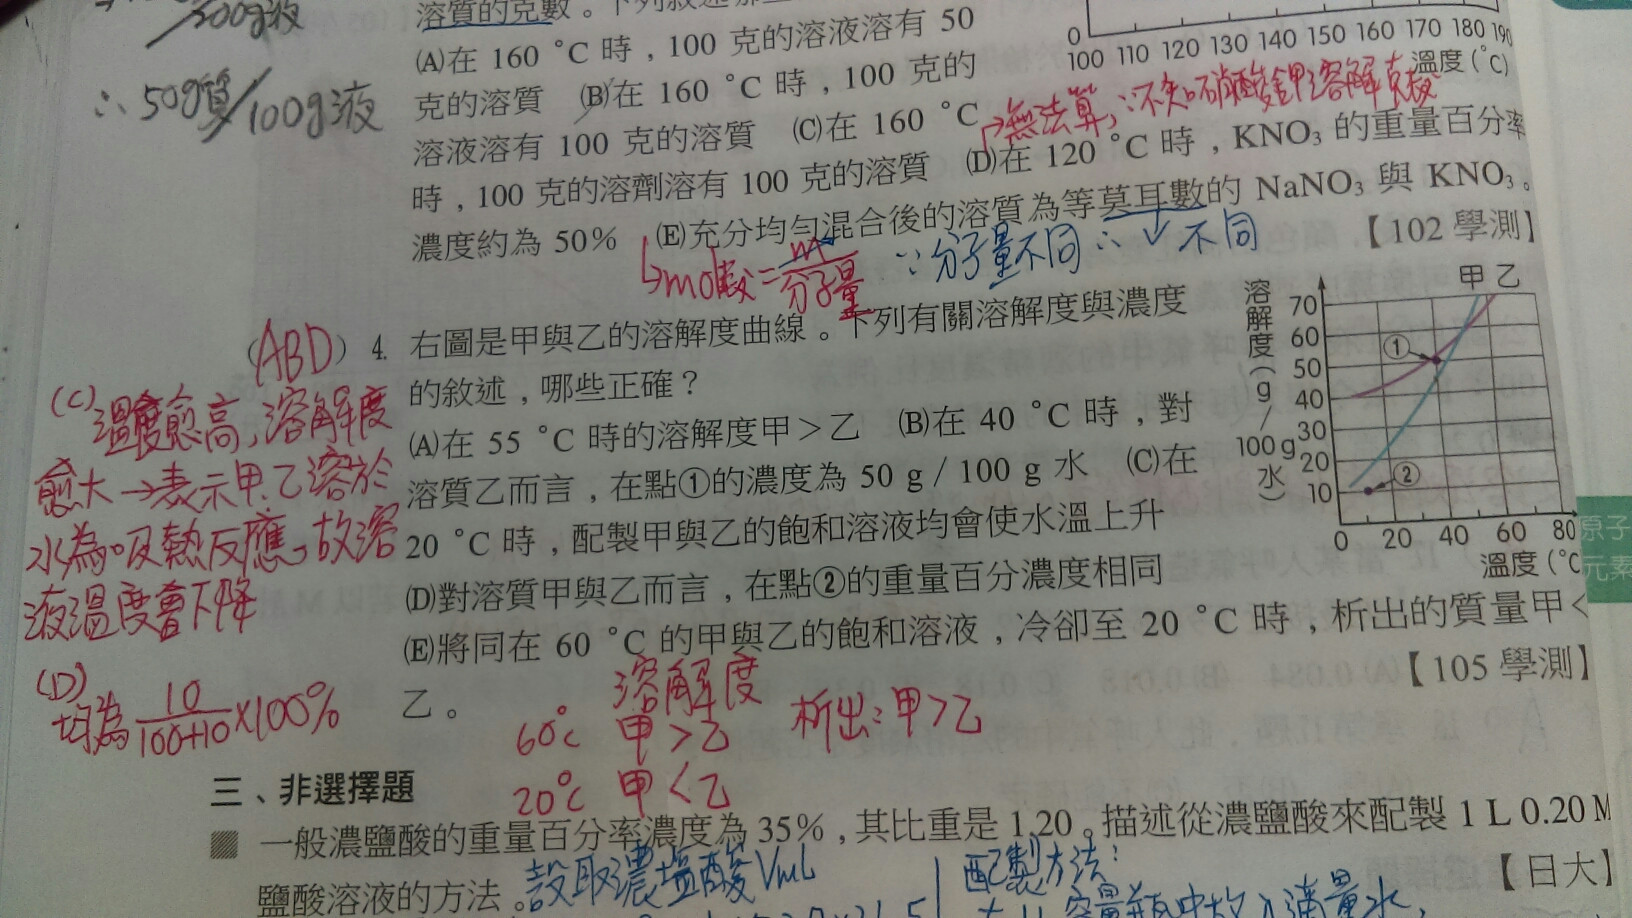 200g液
溶質的克數。下列敘述
(A)在 160 °C 時，100 克的溶液溶有 50
克的溶質 (B)在 160 °C 時，100 克的
溶液溶有 100 克的溶質 (C)在 160 °C
時，100 克的溶劑溶有 100 克的溶質 (D)在 120 °C 時，KNO₃ 的重量百分率
濃度約為 50% (E)充分均勻混合後的溶質為等莫耳數的 NaNO₃ 與 KNO₃。
【102 學測】
∴ 50g質/100g液
0
100 110 120 130 140 150 160 170 180 190
溫度(°C)
無法算，∵不知硝酸鉀溶解克數
mol數=
分子量
∵分子量不同∴ ↓不同
(ABD) 4. 右圖是甲與乙的溶解度曲線。下列有關溶解度與濃度
的敘述，哪些正確？
(A)在 55 °C 時的溶解度甲＞乙 (B)在 40 °C 時，對
溶質乙而言，在點①的濃度為 50 g / 100 g 水 (C)在
20 °C 時，配製甲與乙的飽和溶液均會使水溫上升
(D)對溶質甲與乙而言，在點②的重量百分濃度相同
(E)將同在 60 °C 的甲與乙的飽和溶液，冷卻至 20 °C 時，析出的質量甲＜
乙。
【105 學測】
甲 乙
溶解度(g/100 g水)
70
60
50
40
30
20
10
①
②
0 20 40 60 80
溫度(°C
(C)溫度愈高，溶解度
愈大→表示甲、乙溶於
水為吸熱反應，故溶
液溫度會下降
(D)
均為 10/100+10 ×100%
溶解度
60°C 甲＞乙
20°C 甲＜乙
析出：甲＞乙
原子
元素
三、非選擇題
一般濃鹽酸的重量百分率濃度為 35%，其比重是 1.20。描述從濃鹽酸來配製 1 L 0.20 M
鹽酸溶液的方法。
【日大】
設取濃塩酸VmL
配製方法：